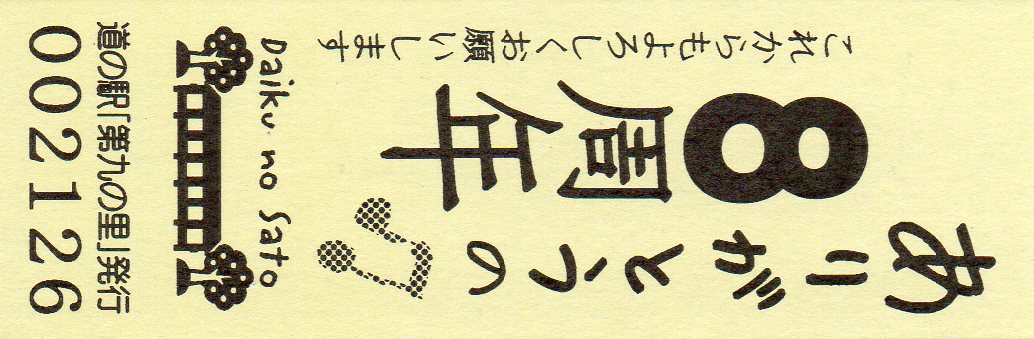 ありがとうの
8周年
これからもよろしくお願いします
Daiku no Sato
道の駅「第九の里」発行
002126